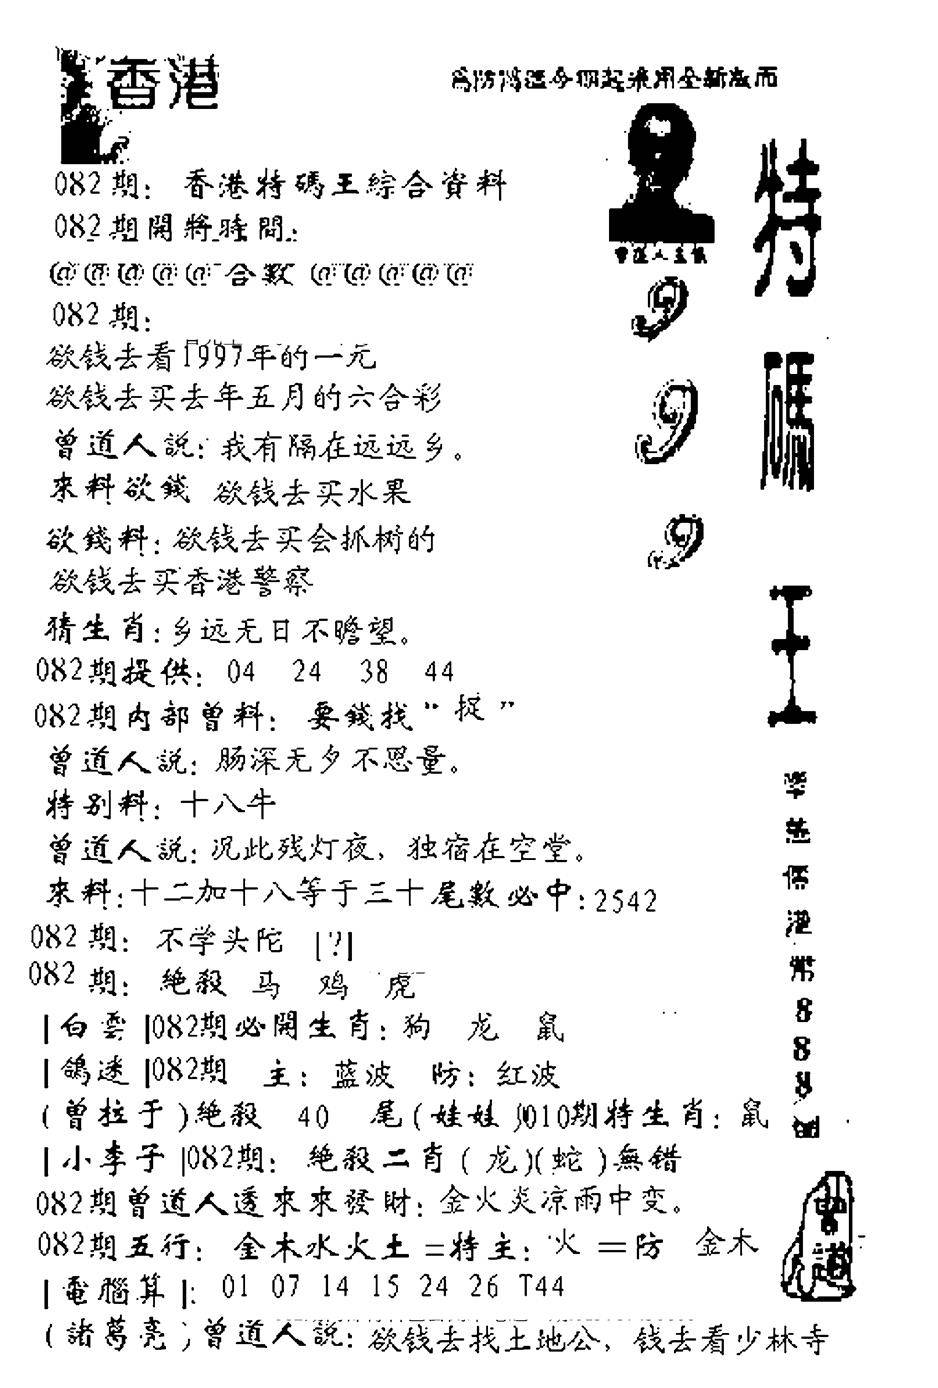 香港
為防偽這今期起采用全新版面
082期：香港特碼王綜合資料
082期開將時間：
@@@@@合數@@@@@
082期：
欲钱去看1997年的一元
欲钱去买去年五月的六合彩
曾道人説：我有隔在远远乡。
來料欲錢 欲钱去买水果
欲錢料：欲钱去买会抓树的
欲钱去买香港警察
猜生肖：乡远无日不瞻望。
082期提供：04 24 38 44
082期内部曾料：要錢找“捉”
曾道人説：肠深无夕不思量。
特别料：十八牛
曾道人説：况此残灯夜，独宿在空堂。
來料：十二加十八等于三十尾數必中：2542
082期：不学头陀 [?]
082期：絶殺 马 鸡 虎
|白雲|082期必開生肖：狗 龙 鼠
|鴿迷|082期 主：蓝波 防：红波
(曾拉于)絶殺 40 尾(娃娃)010期特生肖：鼠
|小李子|082期：絶殺二肖(龙)(蛇)無错
082期曾道人透來來發財：金火炎凉雨中变。
082期五行：金木水火土=特主：火=防 金木
|電腦算|：01 07 14 15 24 26 T44
(諸葛亮)曾道人説：欲钱去找土地公，钱去看少林寺
曾道人主儀
9
9
9
特
碼
王
港
幣
8
8
8
曾
道